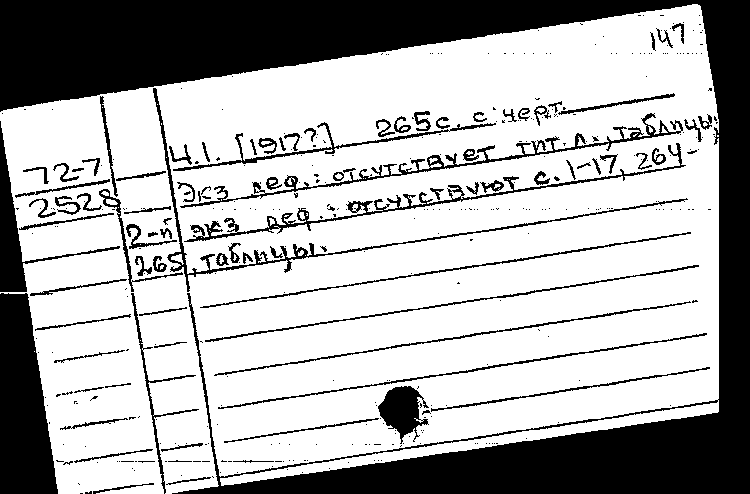 147
Ч.1. [1917?] 265с. с черт.
72-7 Экз деф.: отсутствует тит. л., таблицы.
2528 2-й экз деф.: отсутствуют с. 1-17, 264-
265, таблицы.